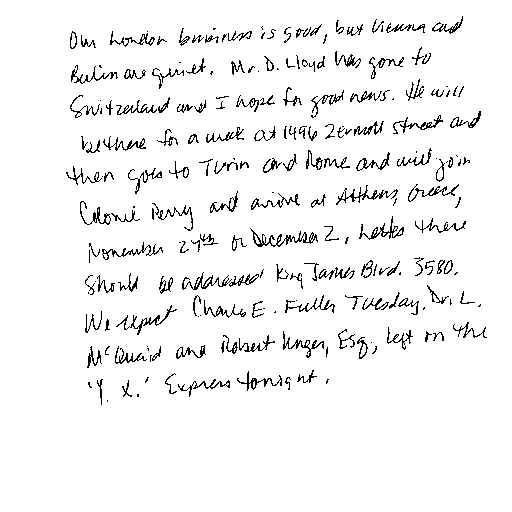 Our London business is good, but Vienna and
Berlin are quiet. Mr. D. Lloyd has gone to
Switzerland and I hope for good news. He will
be there for a week at 1496 Zermott street and
then goes to Turin and Rome and will join
Colonel Perry and arrive at Athens, Greece,
November 27th or December 2. Letters there
should be addressed King James Blvd. 3580.
We expect Charles E. Fuller Tuesday. Dr. L.
McQuaid and Robert Unger, Esq., left on the
'Y. X.' Express tonight.